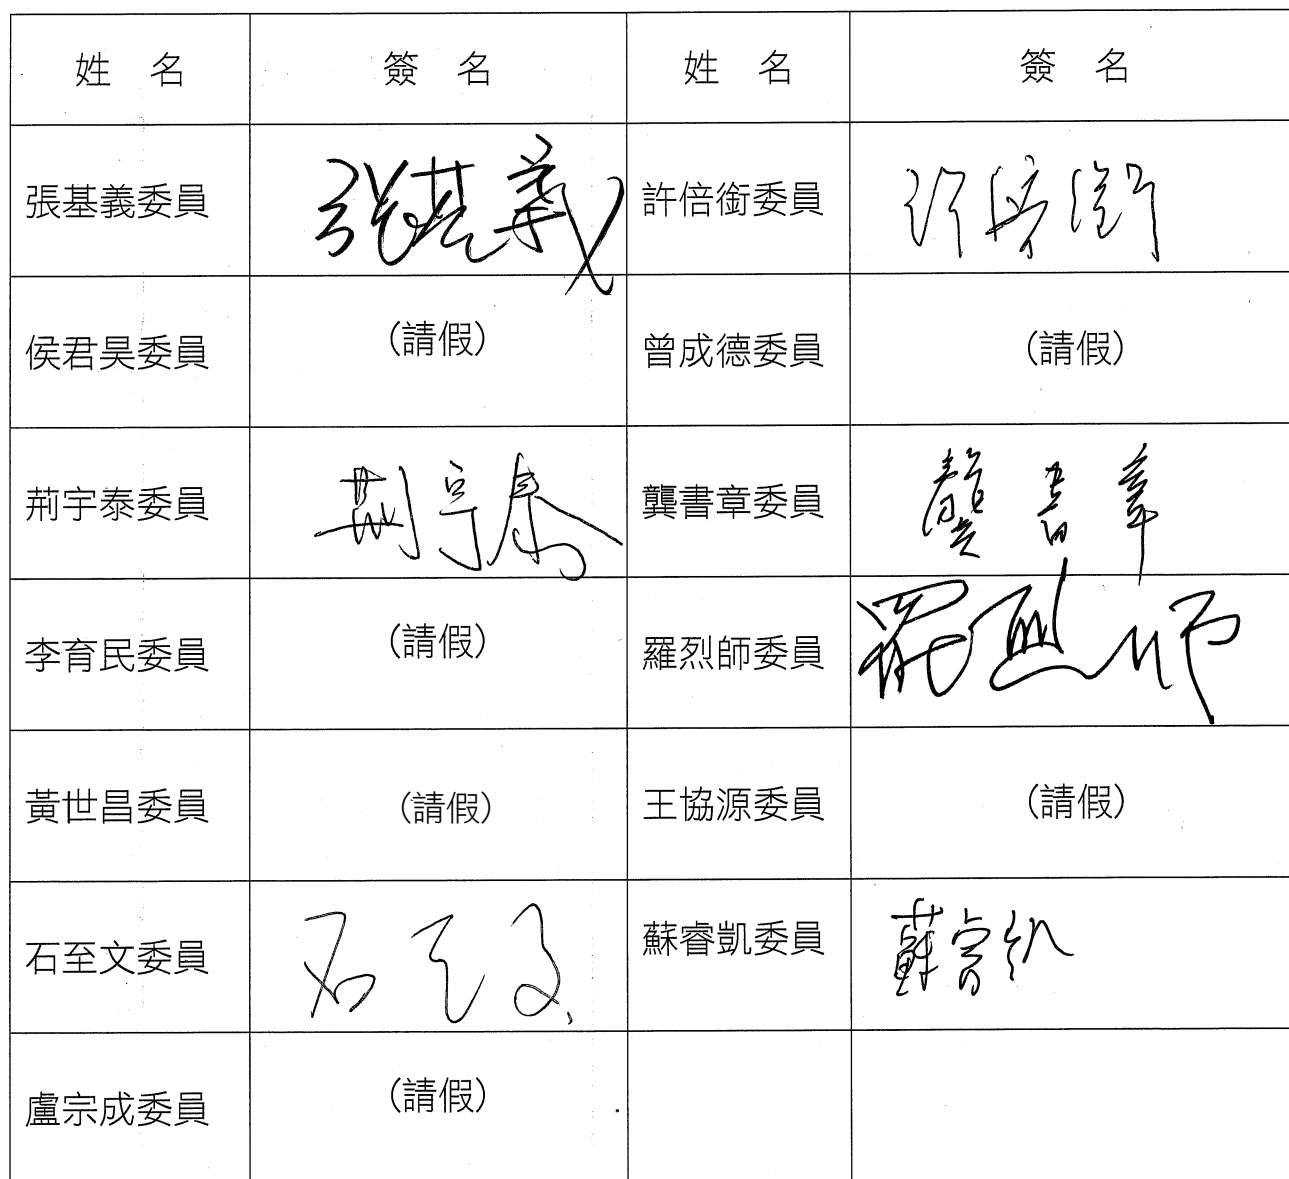 姓 名 簽 名 姓 名 簽 名
張基義委員 張基義 許倍銜委員 許倍銜
侯君昊委員 (請假) 曾成德委員 (請假)
荊宇泰委員 荊宇泰 龔書章委員 龔書章
李育民委員 (請假) 羅烈師委員 羅烈師
黃世昌委員 (請假) 王協源委員 (請假)
石至文委員 石至文 蘇睿凱委員 蘇睿凱
盧宗成委員 (請假)